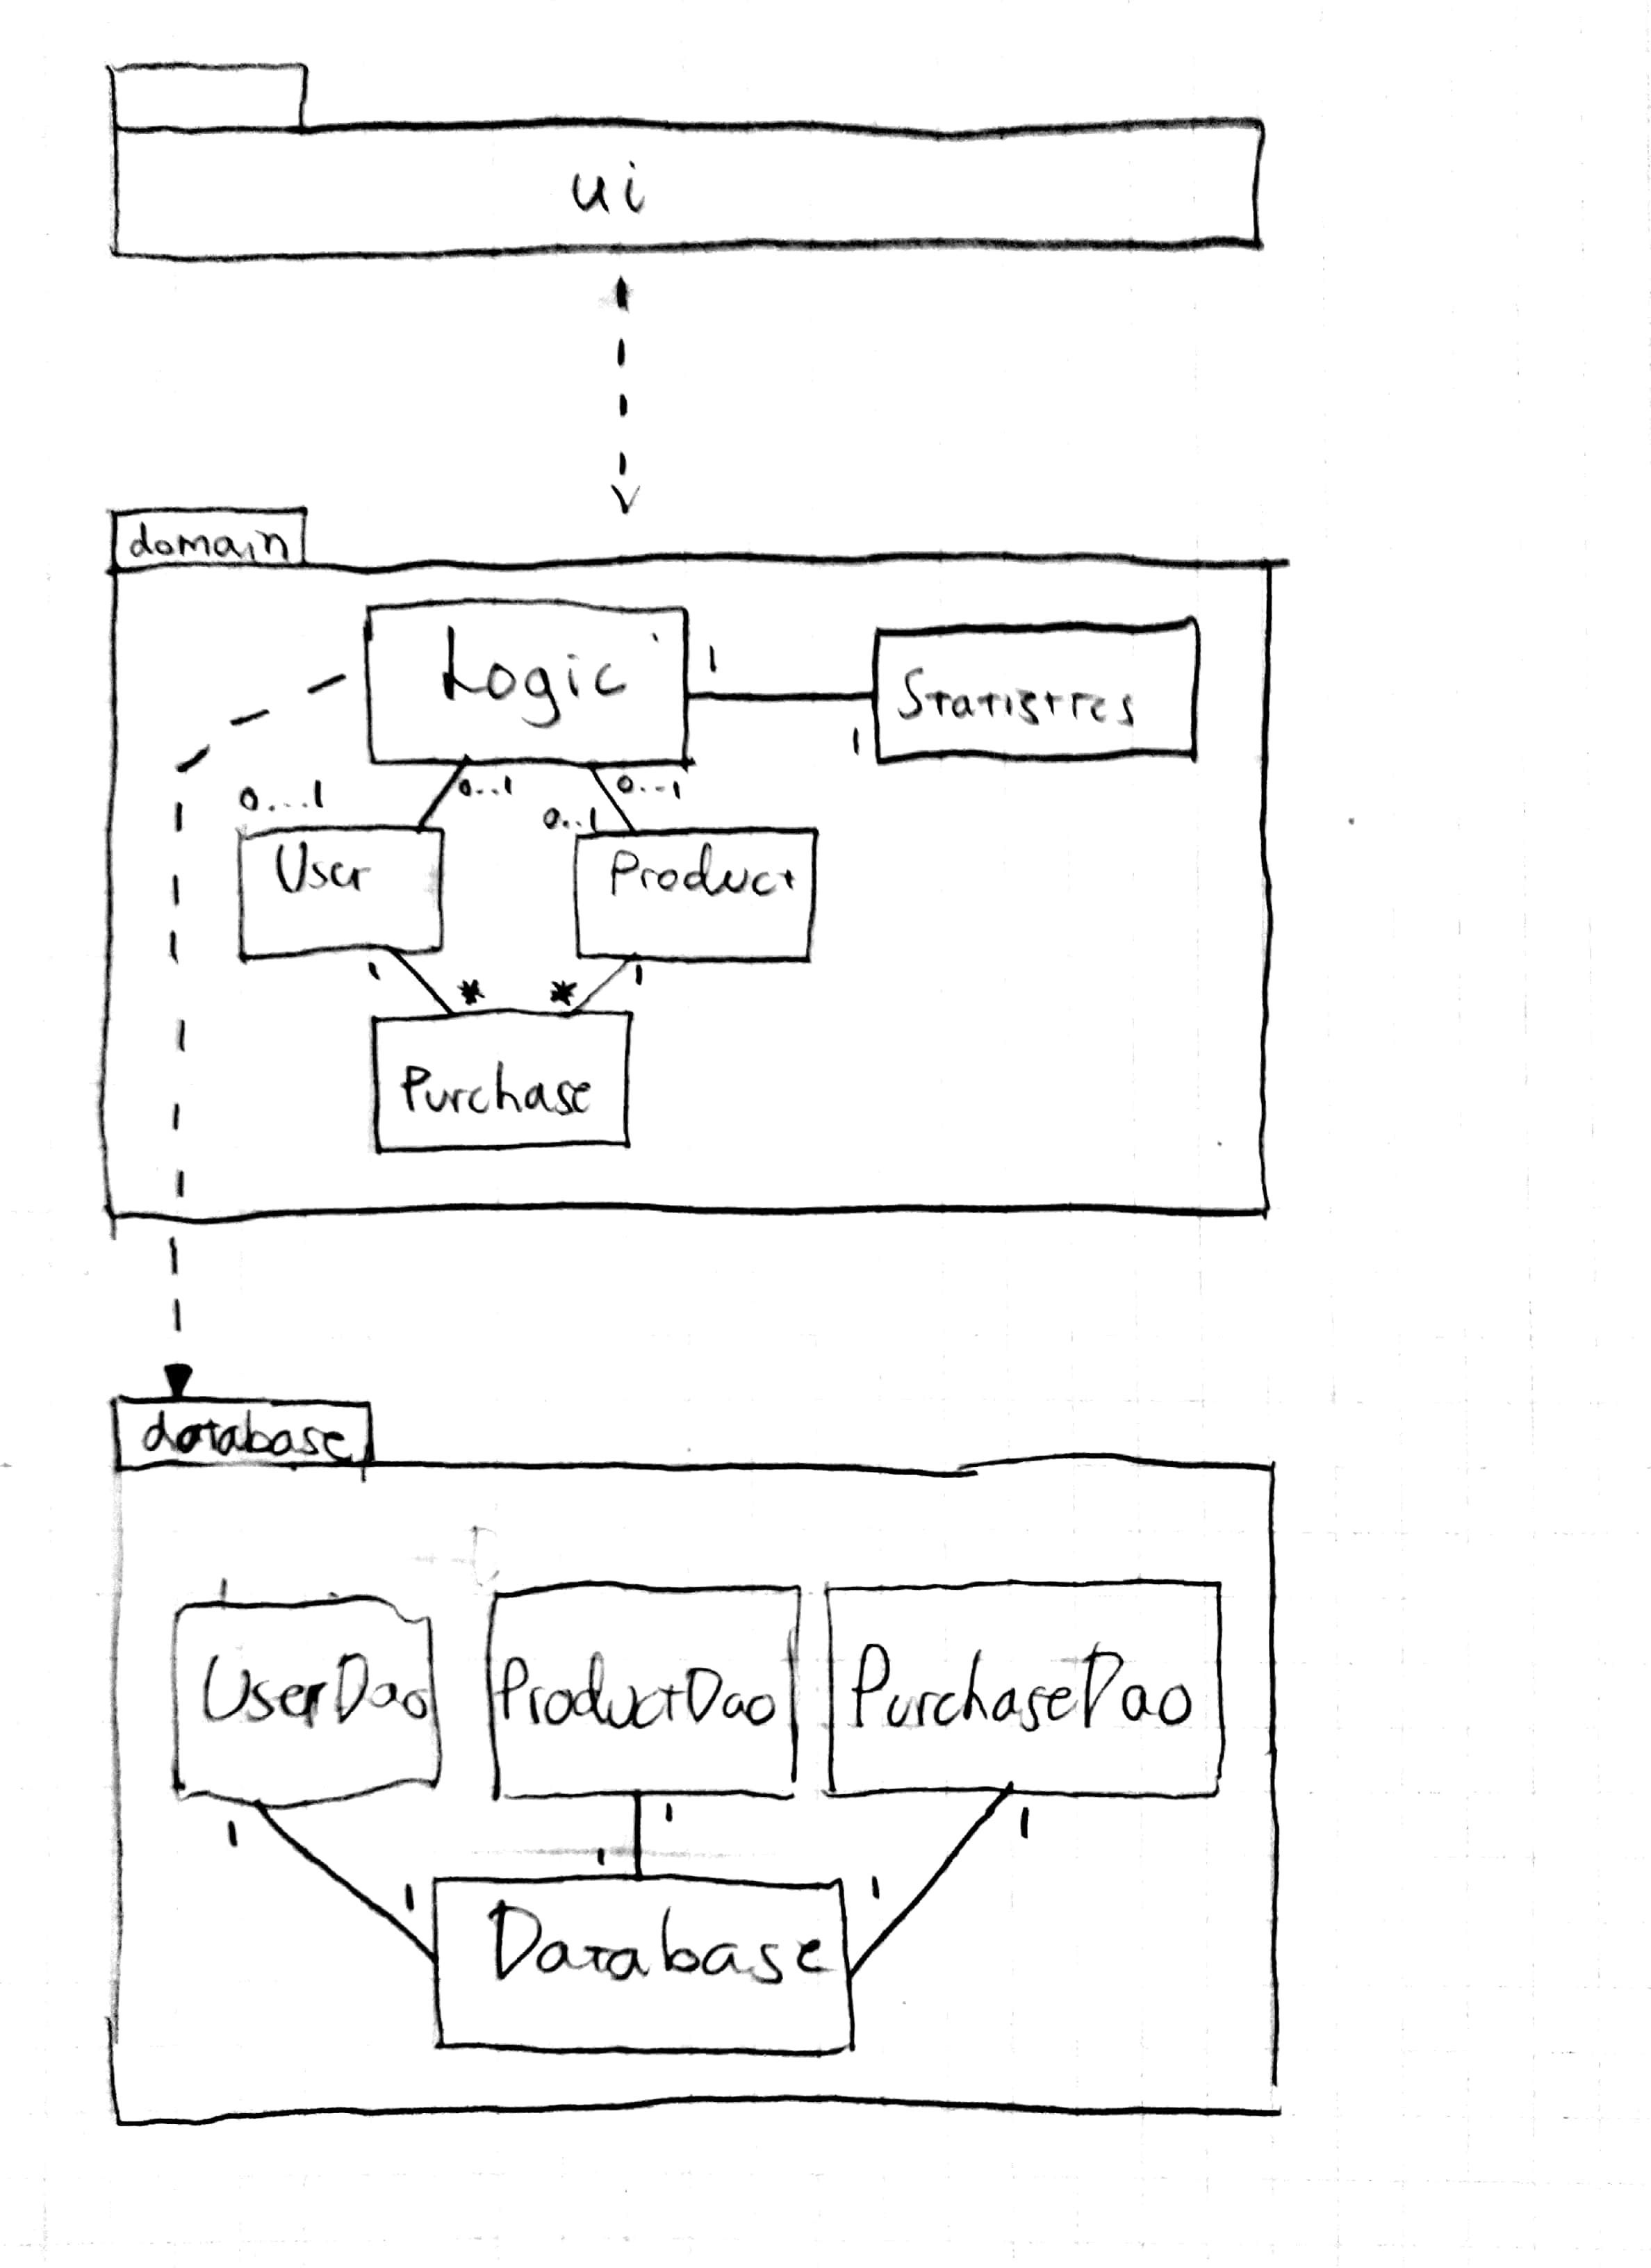 ui
domain
Logic
1
Statistics
1
0...1
0..1
0..1
0..1
User
Product
1
*
*
1
Purchase
database
UserDao
ProductDao
PurchaseDao
1
1
1
1
1
1
Database